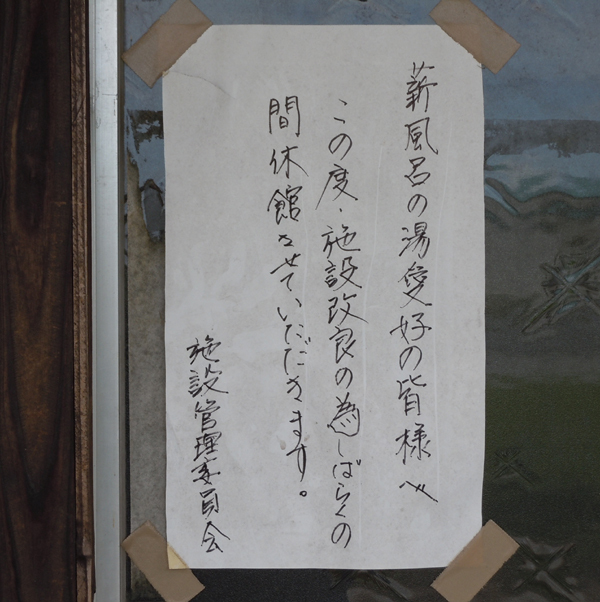 薪風呂の湯愛好の皆様へ
この度、施設改良の為しばらくの
間休館させていただきます。
施設管理委員会